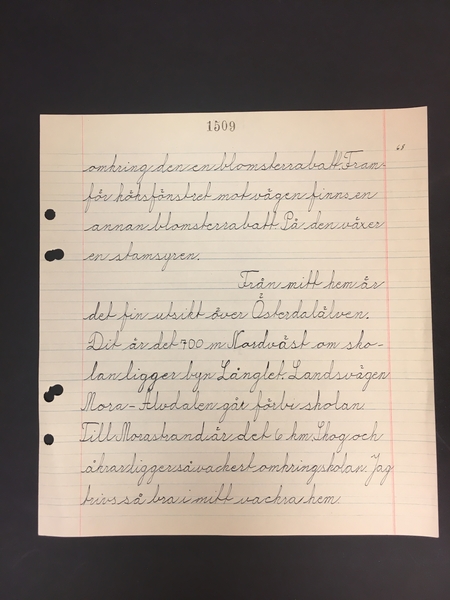 1509
68
omkring den en blomsterrabatt. Fram-
för köksfönstret mot vägen finns en
annan blomsterrabatt. På den växer
en stamsyren.
Från mitt hem är
det fin utsikt över Österdalälven.
Dit är det 700 m Nordväst om sko-
lan ligger byn Långlet. Landsvägen
Mora - Älvdalen går förbi skolan.
Till Morastrand är det 6 km. Skog och
åkrar ligger så vackert omkring skolan. Jag
trivs så bra i mitt vackra hem.